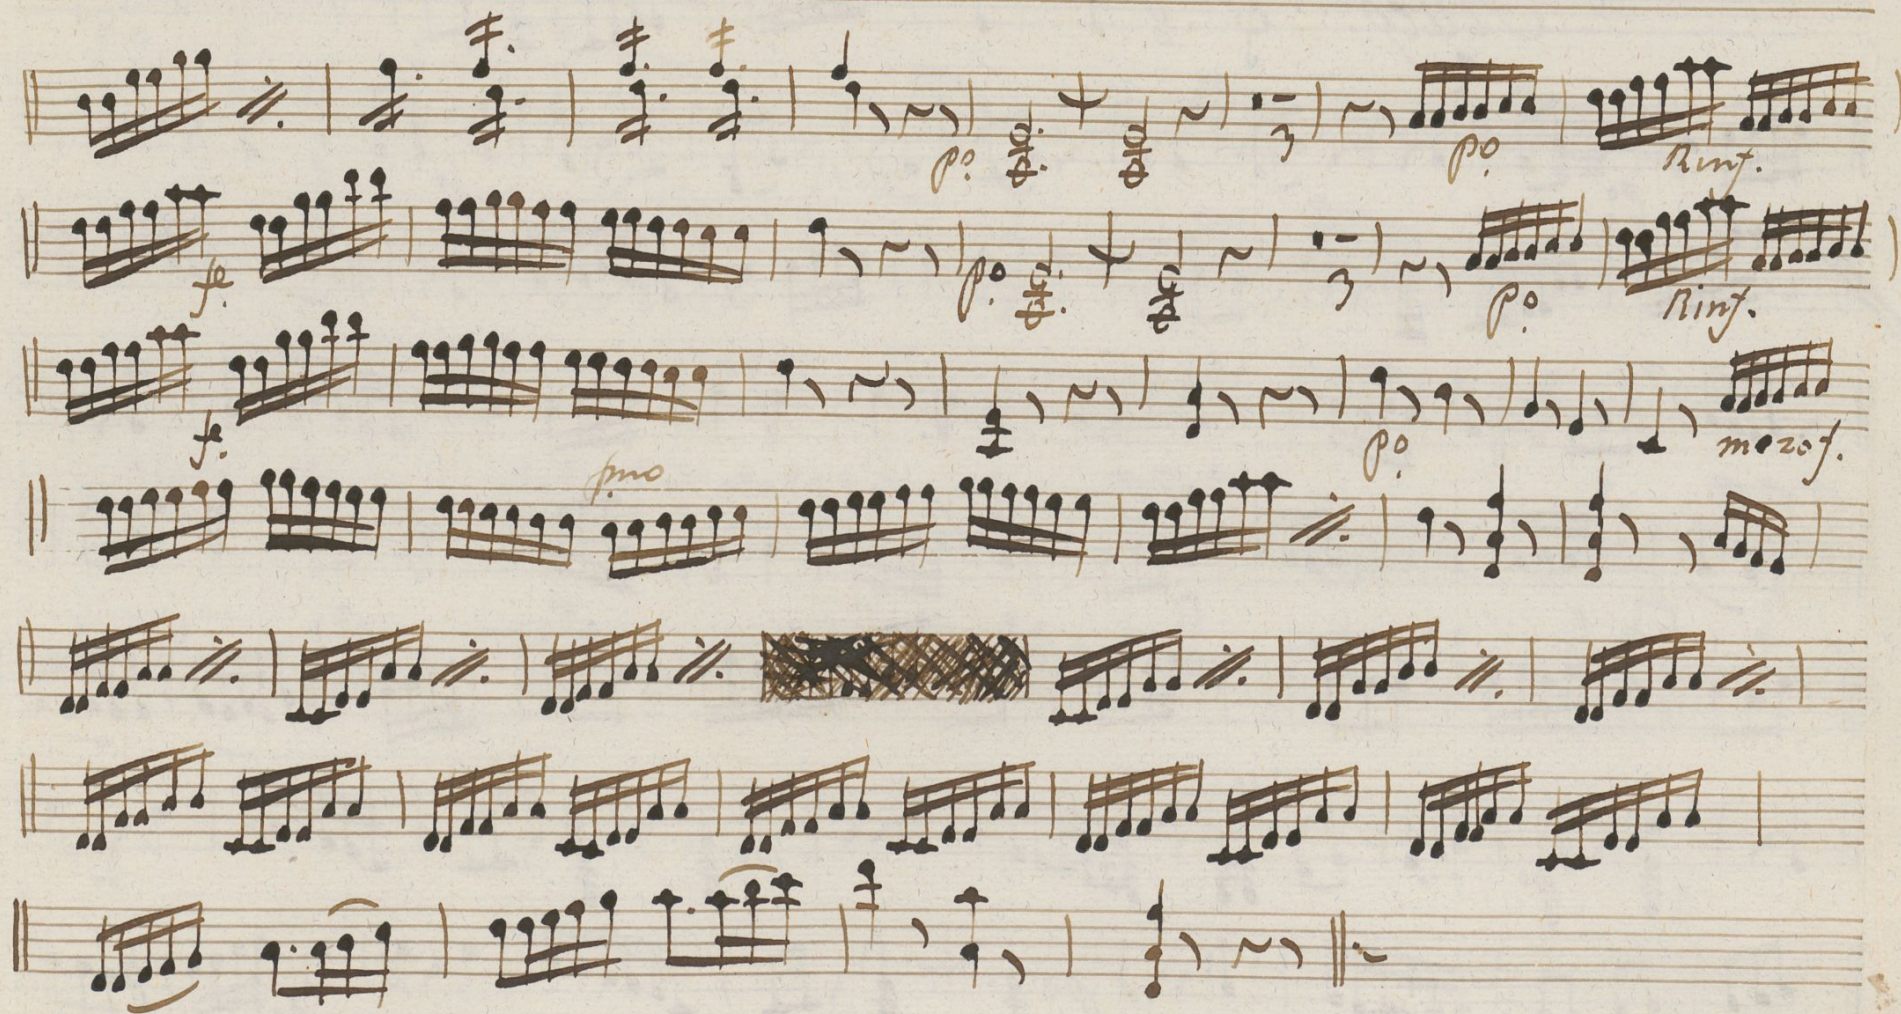 po. 3 po. Rinf.
fe. po. 3 po. Rinf.
fe. po. mezof.
pmo